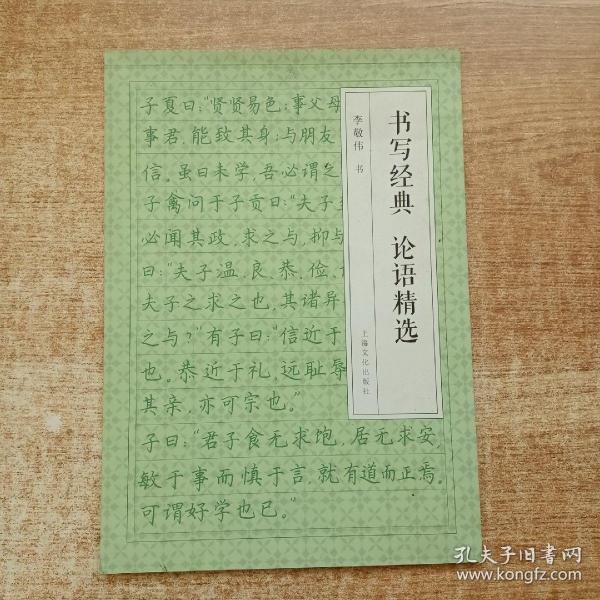 子夏曰："贤贤易色；事父母
事君，能致其身；与朋友
信。虽曰未学，吾必谓之
子禽问于子贡曰："夫子
必闻其政，求之与，抑与
曰："夫子温、良、恭、俭、
夫子之求之也，其诸异
之与？"有子曰："信近于
也。恭近于礼，远耻辱
其亲，亦可宗也。"
子曰："君子食无求饱，居无求安，
敏于事而慎于言，就有道而正焉，
可谓好学也已。"
书写经典 论语精选
李敬伟 书
上海文化出版社
孔夫子旧书网
www.kongfz.com